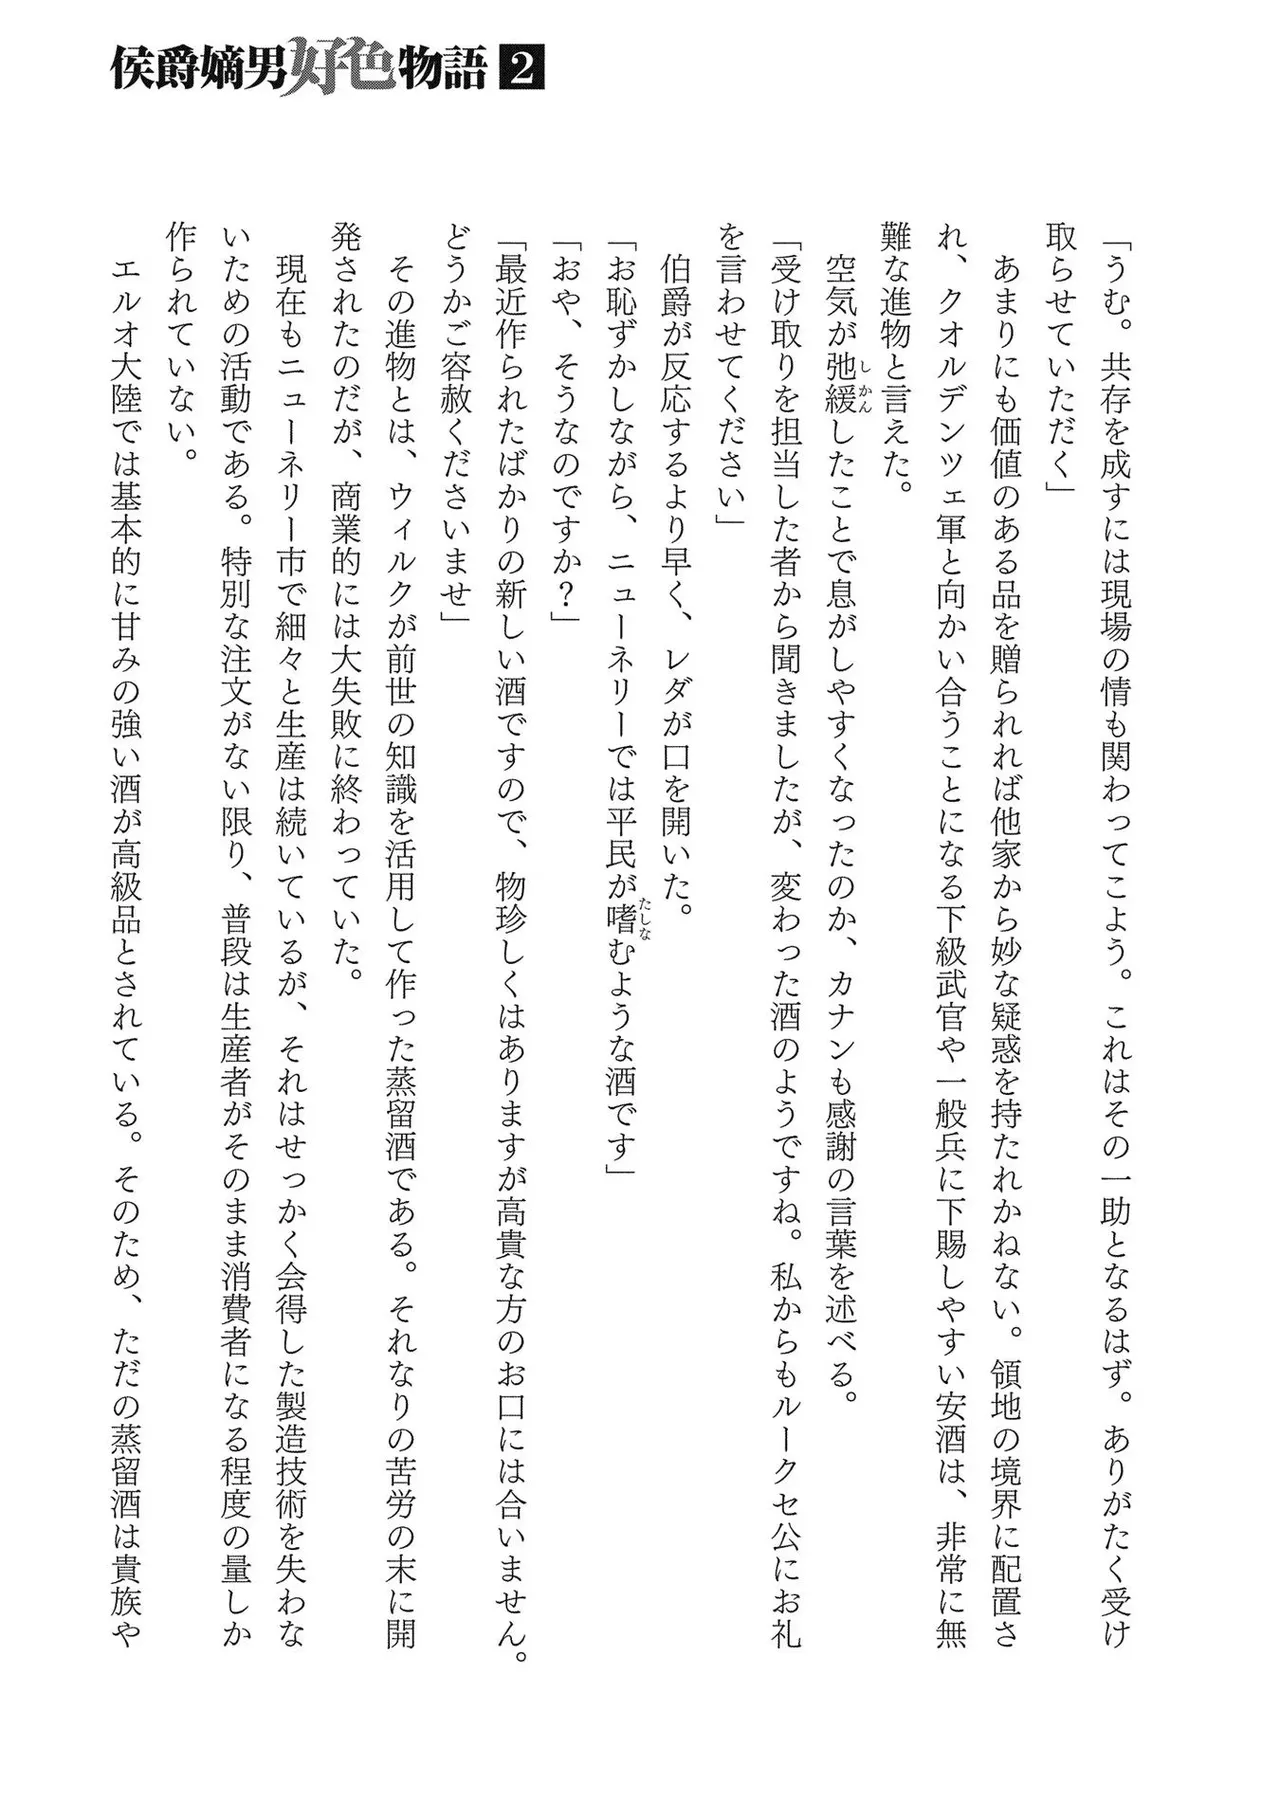 侯爵嫡男好色物語 2
「うむ。共存を成すには現場の情も関わってこよう。これはその一助となるはず。ありがたく受け
取らせていただく」
　あまりにも価値のある品を贈られれば他家から妙な疑惑を持たれかねない。領地の境界に配置さ
れ、クオルデンツェ軍と向かい合うことになる下級武官や一般兵に下賜しやすい安酒は、非常に無
難な進物と言えた。
　空気が弛緩したことで息がしやすくなったのか、カナンも感謝の言葉を述べる。
「受け取りを担当した者から聞きましたが、変わった酒のようですね。私からもルークセ公にお礼
を言わせてください」
　伯爵が反応するより早く、レダが口を開いた。
「お恥ずかしながら、ニューネリーでは平民が嗜むような酒です」
「おや、そうなのですか？」
「最近作られたばかりの新しい酒ですので、物珍しくはありますが高貴な方のお口には合いません。
どうかご容赦くださいませ」
　その進物とは、ウィルクが前世の知識を活用して作った蒸留酒である。それなりの苦労の末に開
発されたのだが、商業的には大失敗に終わっていた。
　現在もニューネリー市で細々と生産は続いているが、それはせっかく会得した製造技術を失わな
いための活動である。特別な注文がない限り、普段は生産者がそのまま消費者になる程度の量しか
作られていない。
　エルオ大陸では基本的に甘みの強い酒が高級品とされている。そのため、ただの蒸留酒は貴族や